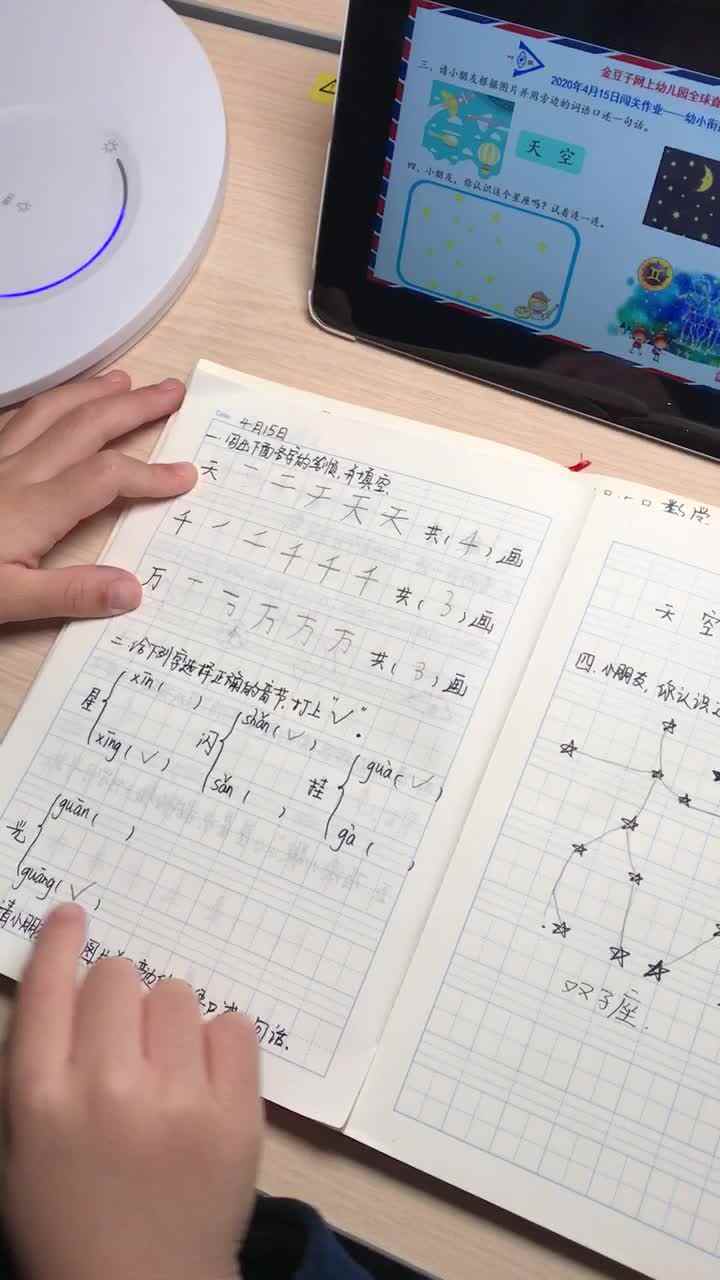 金豆子网上幼儿园全球直
2020年4月15日闯关作业——幼小衔
三、请小朋友根据图片并用旁边的词语口述一句话。
天 空
四、小朋友，你认识这个星座吗？试着连一连。
Date.
4月15日
一、写出下面各字的笔顺，并填空。
天 一 二 于 天 天 共（4）画
千 ノ 二 千 千 千 共（3）画
万 一 丂 万 万 万 共（3）画
二、给下列字选择正确的音节，打上“√”。
星 xīn（ ） xīng（√）
闪 shǎn（√） sǎn（ ）
挂 guà（√） gà（ ）
光 guān（ ） guāng（√）
请小朋 图片 旁边 口述 句话。
数学
天 空
四、小朋友，你认识
双子座.